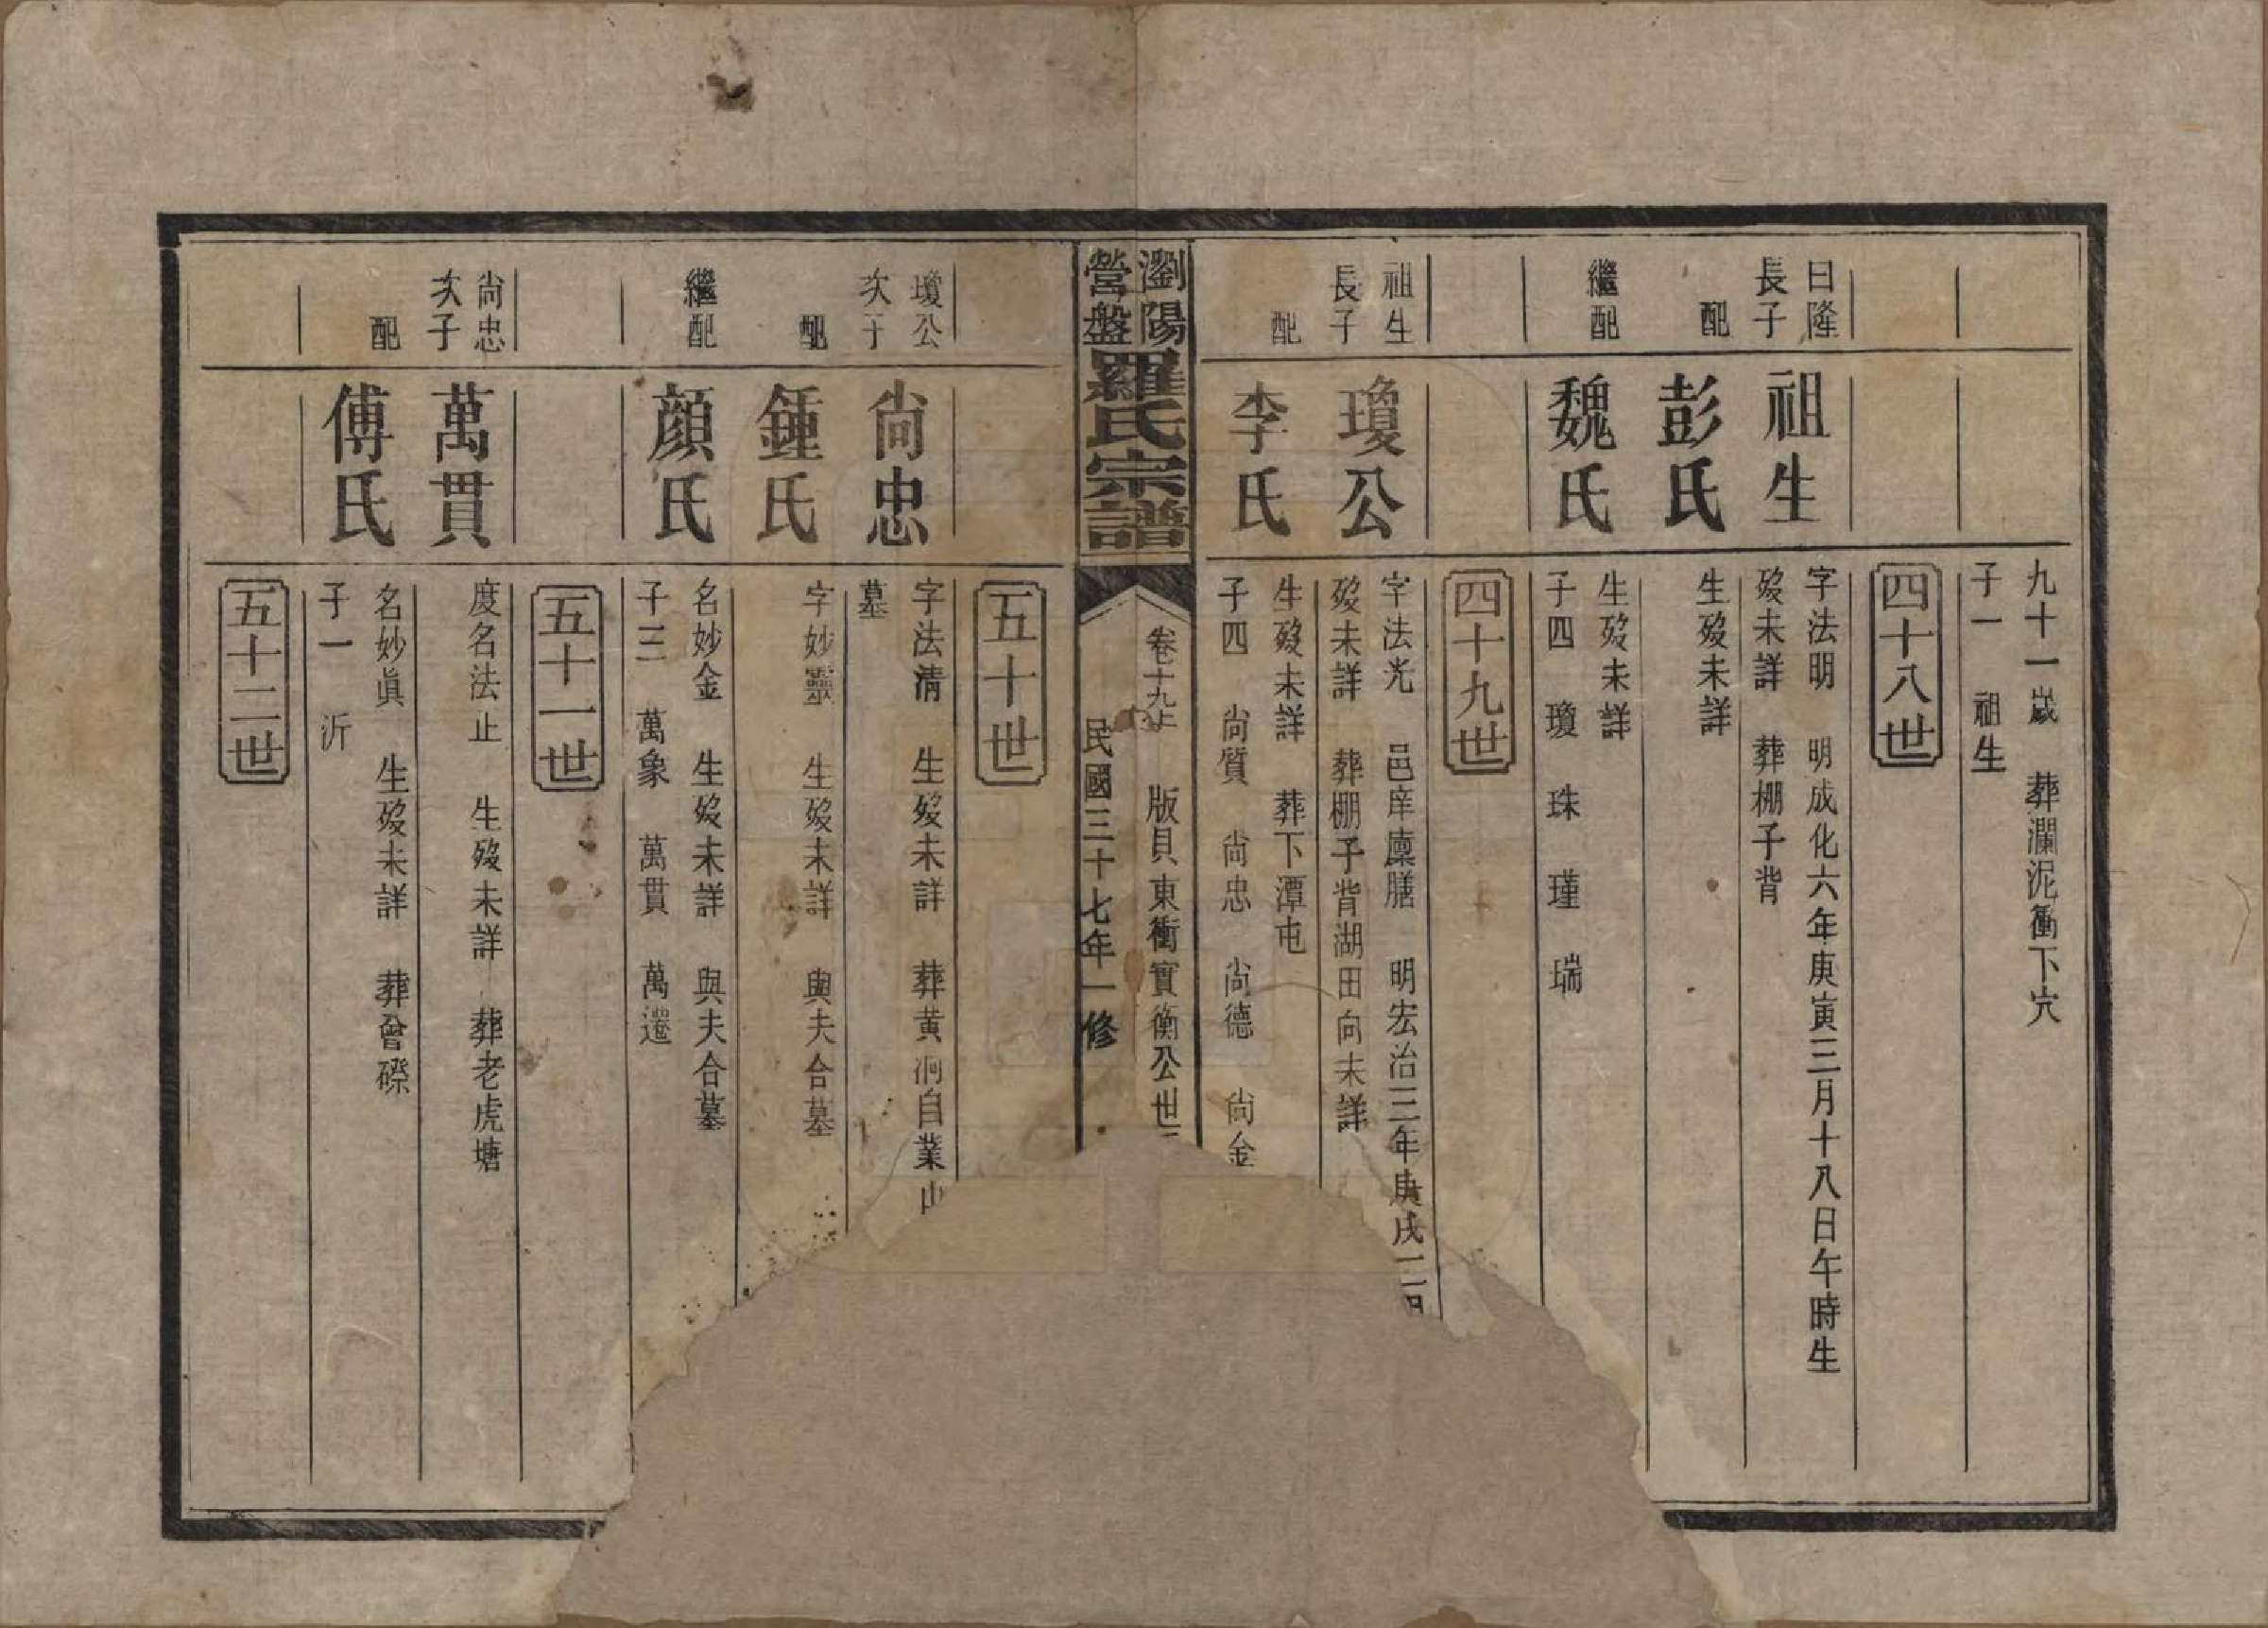 九十一歲　葬瀾泥衝下穴
子一　祖生
四十八世
曰隆
長子
祖生
字法明　明成化六年庚寅三月十八日午時生
歿未詳　葬棚子背
配
彭氏
生歿未詳
繼配
魏氏
生歿未詳
子四　瓊　珠　瑾　瑞
四十九世
祖生
長子
瓊公
字法光　邑庠廩膳　明宏治三年庚戌二
歿未詳　葬棚子背湖田向未詳
配
李氏
生歿未詳　葬下潭屯
子四　尚質　尚忠　尚德　尚金
瀏陽
營盤
羅氏宗譜
卷十九上　版貝東衝實衡公世
民國三十七年一修
五十世
瓊公
次子
尚忠
字法清　生歿未詳　葬黃洞自業山
墓
配
鍾氏
字妙靈　生歿未詳　與夫合墓
繼配
顏氏
名妙金　生歿未詳　與夫合墓
子三　萬象　萬貫　萬選
五十一世
尚忠
次子
萬貫
度名法止　生歿未詳　葬老虎塘
配
傅氏
名妙眞　生歿未詳　葬會磜
子一　沂
五十二世